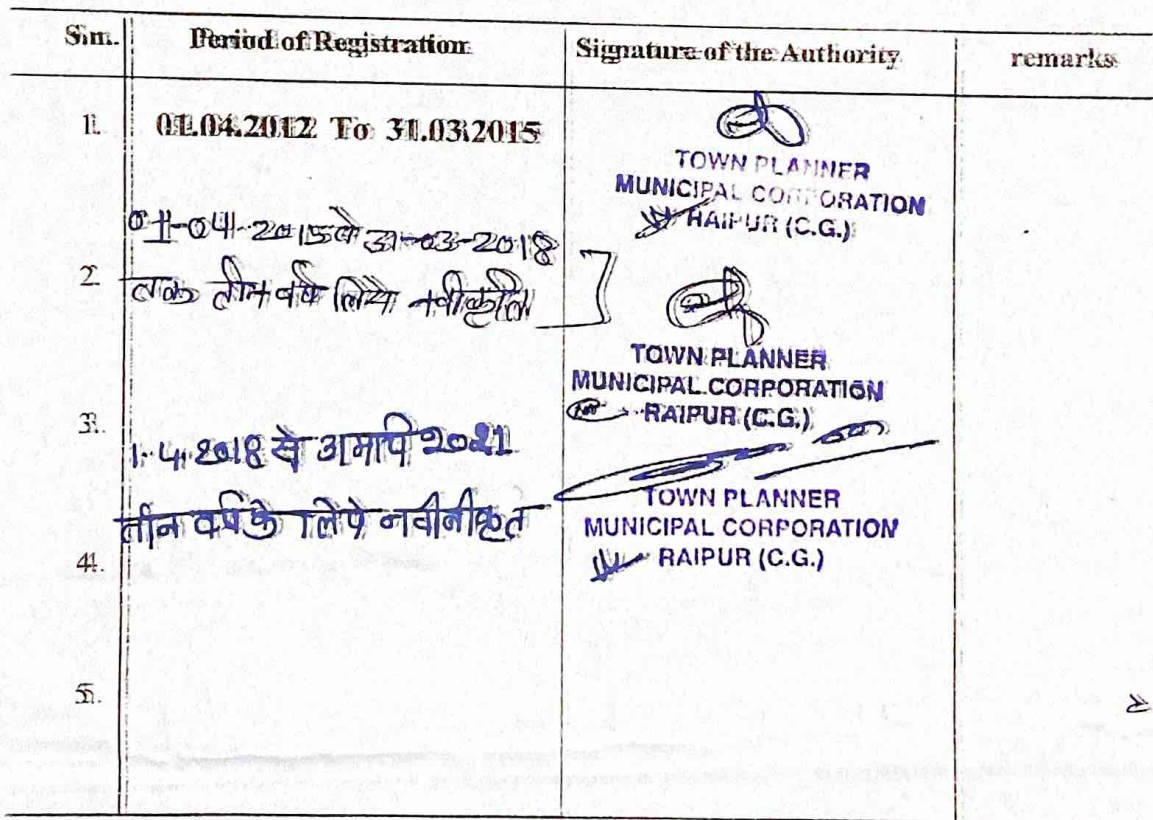 S.no. Period of Registration Signature of the Authority remarks
1. 01.04.2012 To 31.03.2015
TOWN PLANNER
MUNICIPAL CORPORATION
RAIPUR (C.G.)
01-04-2015 से 31-03-2018
2. तक तीन वर्ष लिये नवीकृत
TOWN PLANNER
MUNICIPAL CORPORATION
RAIPUR (C.G.)
3.
1.4.2018 से 2021
तीन वर्ष के लिये नवीनीकृत
TOWN PLANNER
MUNICIPAL CORPORATION
4. RAIPUR (C.G.)
5.